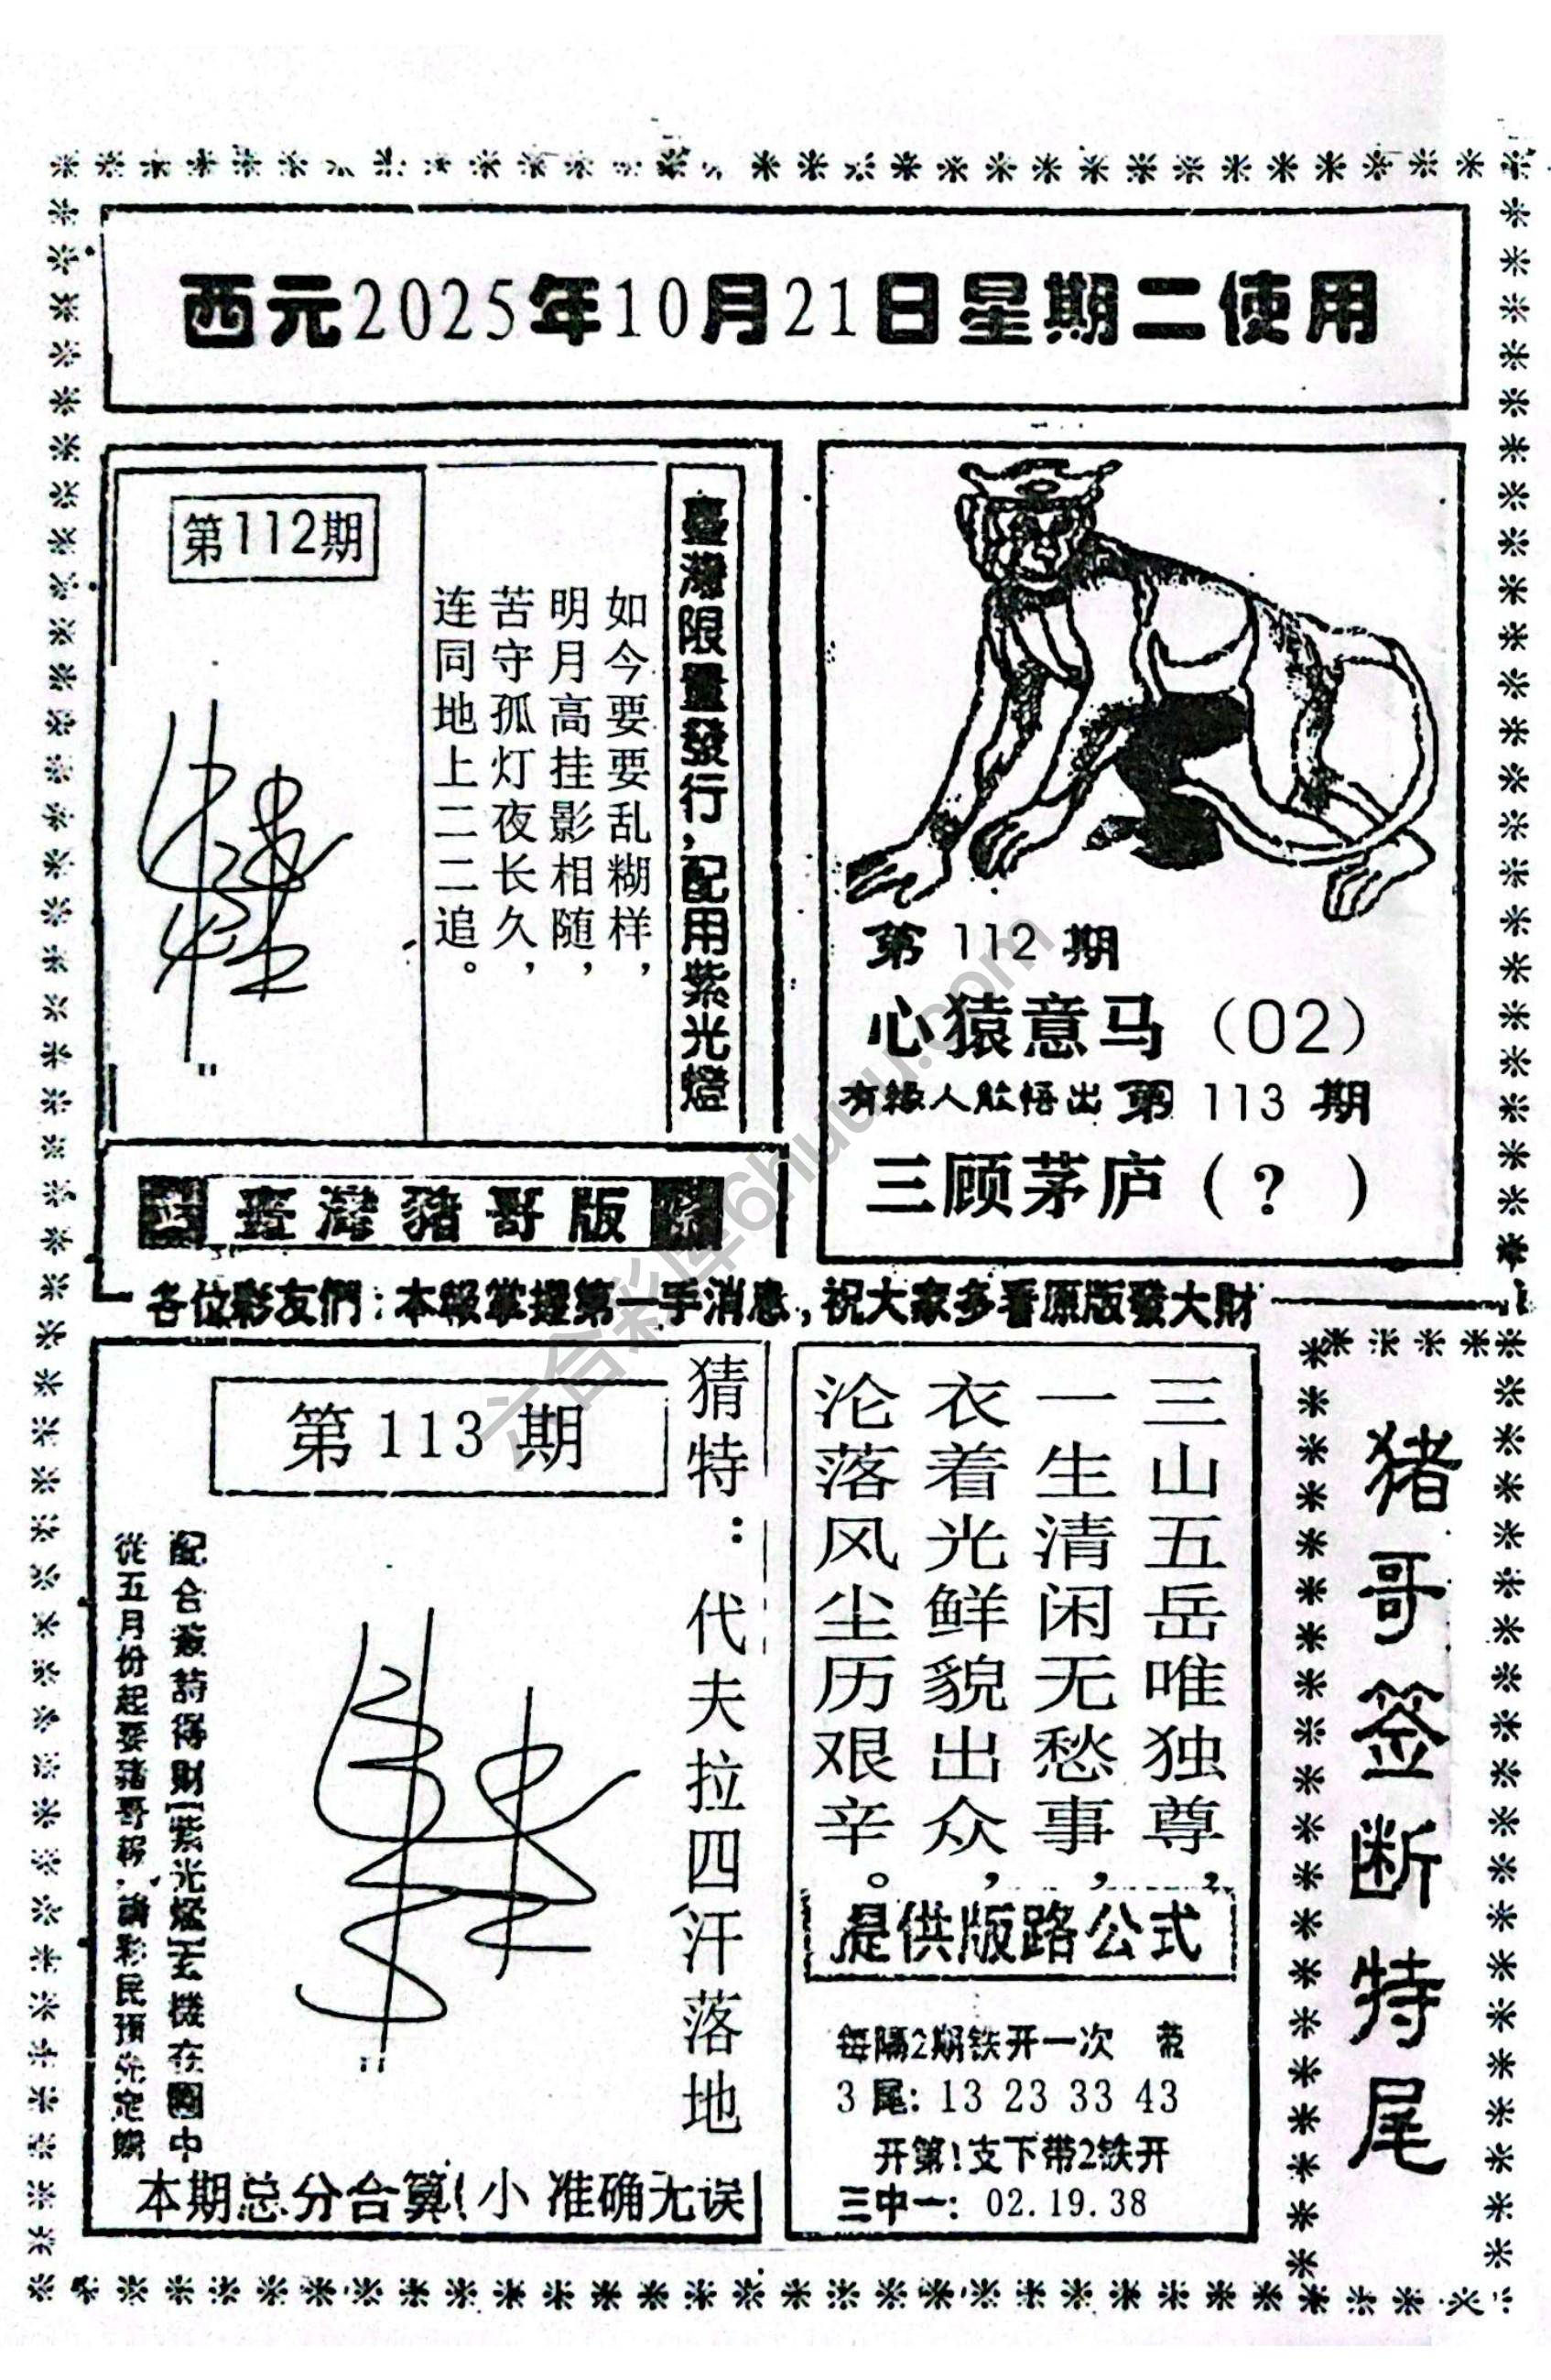 西元2025年10月21日星期二使用
第112期
臺灣限量發行,配用紫光燈
如今要要乱糊样,
明月高挂影相随,
苦守孤灯夜长久,
连同地上二二追。
第 112 期
心猿意马（02）
有緣人能悟出 第 113 期
三顾茅庐（? ）
臺灣豬哥版
各位彩友們:本報掌握第一手消息,祝大家多看原版發大財
第 113 期
猜特: 代夫拉四汗落地
配合簽詩得財[紫光燈]玄機在圖中
從五月份起要豬哥報,請彩民預先定購
本期总分合算!小 准确无误
三山五岳唯独尊,
一生清闲无愁事,
衣着光鲜貌出众,
沦落风尘历艰辛。
提供版路公式
每隔2期铁开一次 带
3 尾: 13 23 33 43
开第!支下带2铁开
三中一: 02.19.38
猪哥签断特尾
六合彩库6huuu.com